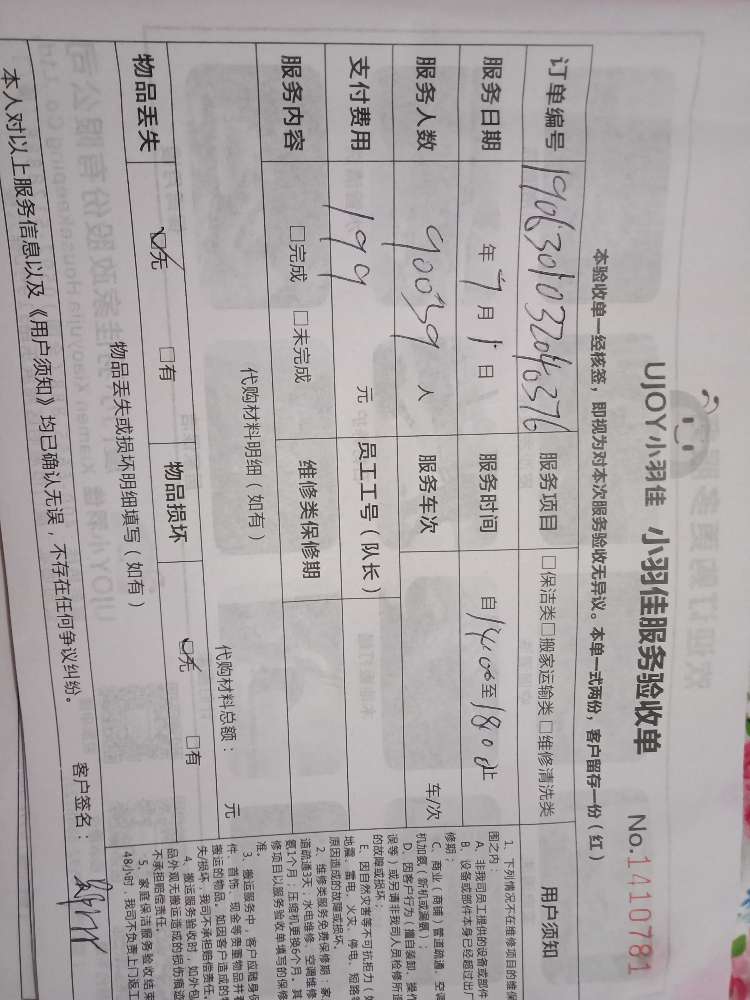 UJOY小羽佳 小羽佳服务验收单 No.1410781
本验收单一经核签，即视为对本次服务验收无异议。本单一式两份，客户留存一份（红）
订单编号 服务项目 □保洁类□搬家运输类□维修清洗类 用户须知
服务日期 年 7 月 1 日 服务时间 自 14:00 至 18:00 止
服务人数 90039 人 服务车次 车/次
支付费用 199 元 员工工号（队长）
服务内容 □完成 □未完成 维修类保修期
代购材料明细（如有）
代购材料总额： 元
物品丢失 ☑无 □有 物品损坏 ☑无 □有
物品丢失或损坏明细填写（如有）
本人对以上服务信息以及《用户须知》均已确认无误，不存在任何争议纠纷。
客户签名：
1、下列情况不在维修项目的维保
围之内：
A、非我司员工提供的设备或部件
B、设备或部件本身已经超过出厂
修期；
C、商业（商铺）管道疏通、空调
机加氨（新机或漏氨）；
D、因客户行为（擅自装卸、操作
误等）或另请非我司人员检修所造
的故障或损坏；
E、因自然灾害等不可抗拒力（如
地震、雷电、火灾、停电、短路等
原因造成的故障或损坏。
2、维修类服务免费保修期：家
道疏通3天；水电维修、空调维修
氨1个月；压缩机更换6个月。其
修项目以服务验收单填写的保修
准。
3、搬运服务中，客户应随身保
件、首饰、现金等贵重物品并看
搬运的物品。如因客户造成的物
失/损坏，我司不承担赔偿责任。
4、搬运服务验收时，如外包
品外观无搬运造成的损伤痕迹
不承担赔偿责任。
5、家庭保洁服务验收结束
48小时，我司不负责上门返工